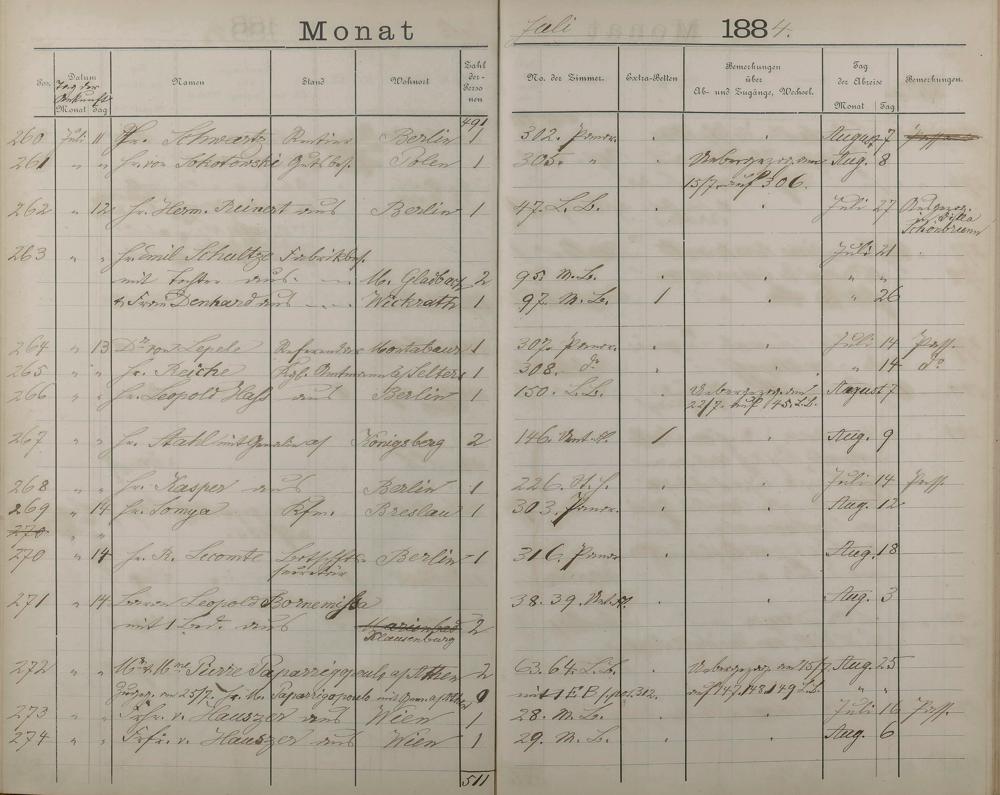 Monat Juli 1884.
Pos. Datum Tag der Ankunft Monat Tag Namen Stand Wohnort Zahl der Personen No. der Zimmer. Extra-Betten Bemerkungen über Ab- und Zugänge, Wechsel. Tag der Abreise Monat Tag Bemerkungen.
491
260 Juli 11 Hr. Schwartz Rentier Berlin 1 302. Panor. August 7
261 " " Hr. von Gutsbes. Polen 1 305. " Uebergezogen am Aug. 8
15/7 auf 306.
262 " 12 Hr. Herm. Reinert aus Berlin 1 47. L. B. Juli 27 Ausgezog.
in Villa
Schönbrunn
263 " " Hr. Emil Schultze Fabrikbes. Juli 21
mit Tochter aus M. Gladbach 2 95. M. B. " "
& Frau Denhard aus Wickrath 1 97. M. B. 1 " 26
264 " 13 Dr. von Lepele Referendar Montabaur 1 307. Panor. Juli 14 Pass.
265 " " Hr. Reiche Kgl. Amtmann a/ Selters 1 308. do " 14 do
266 " " Hr. Leopold Hass aus Berlin 1 150. L. B. Uebergezogen am August 7
22/7. auf 145. L. B.
267 " " Hr. Stahl mit Gemalin a/ Königsberg 2 146. 1 Aug. 9
268 " " Hr. Kasper aus Berlin 1 226. Juli 14 Pass.
269 " 14 Hr. Tomya Kfm. Breslau 1 303. Panor. Aug. 12
270 " "
270 " 14 Hr. R. Lecomte Botschfts- Berlin 1 316. Panor Aug. 18
secretär
271 " 14 Baron Leopold Bornemissa 38. 39. Aug. 3
mit 1 Bed. aus Marienbad 2
Klausenburg
272 " " Mr & Mme Pierre Paparrigopoulo a/ Athen 2 63. 64. L. B. Uebergezog. am 15/7 Aug. 25
Zugez. am 25/7. Hr. M. Paparrigopoulo mit a/ Athen mit 1 E B 312. auf 147. 148. 149 L. B. " "
273 " " Frhr. v. Hauszer aus Wien 1 28. M. B. Juli 16 Pass.
274 " " Frfr. v. Hauszer aus Wien 1 29. M. B. Aug. 6
511